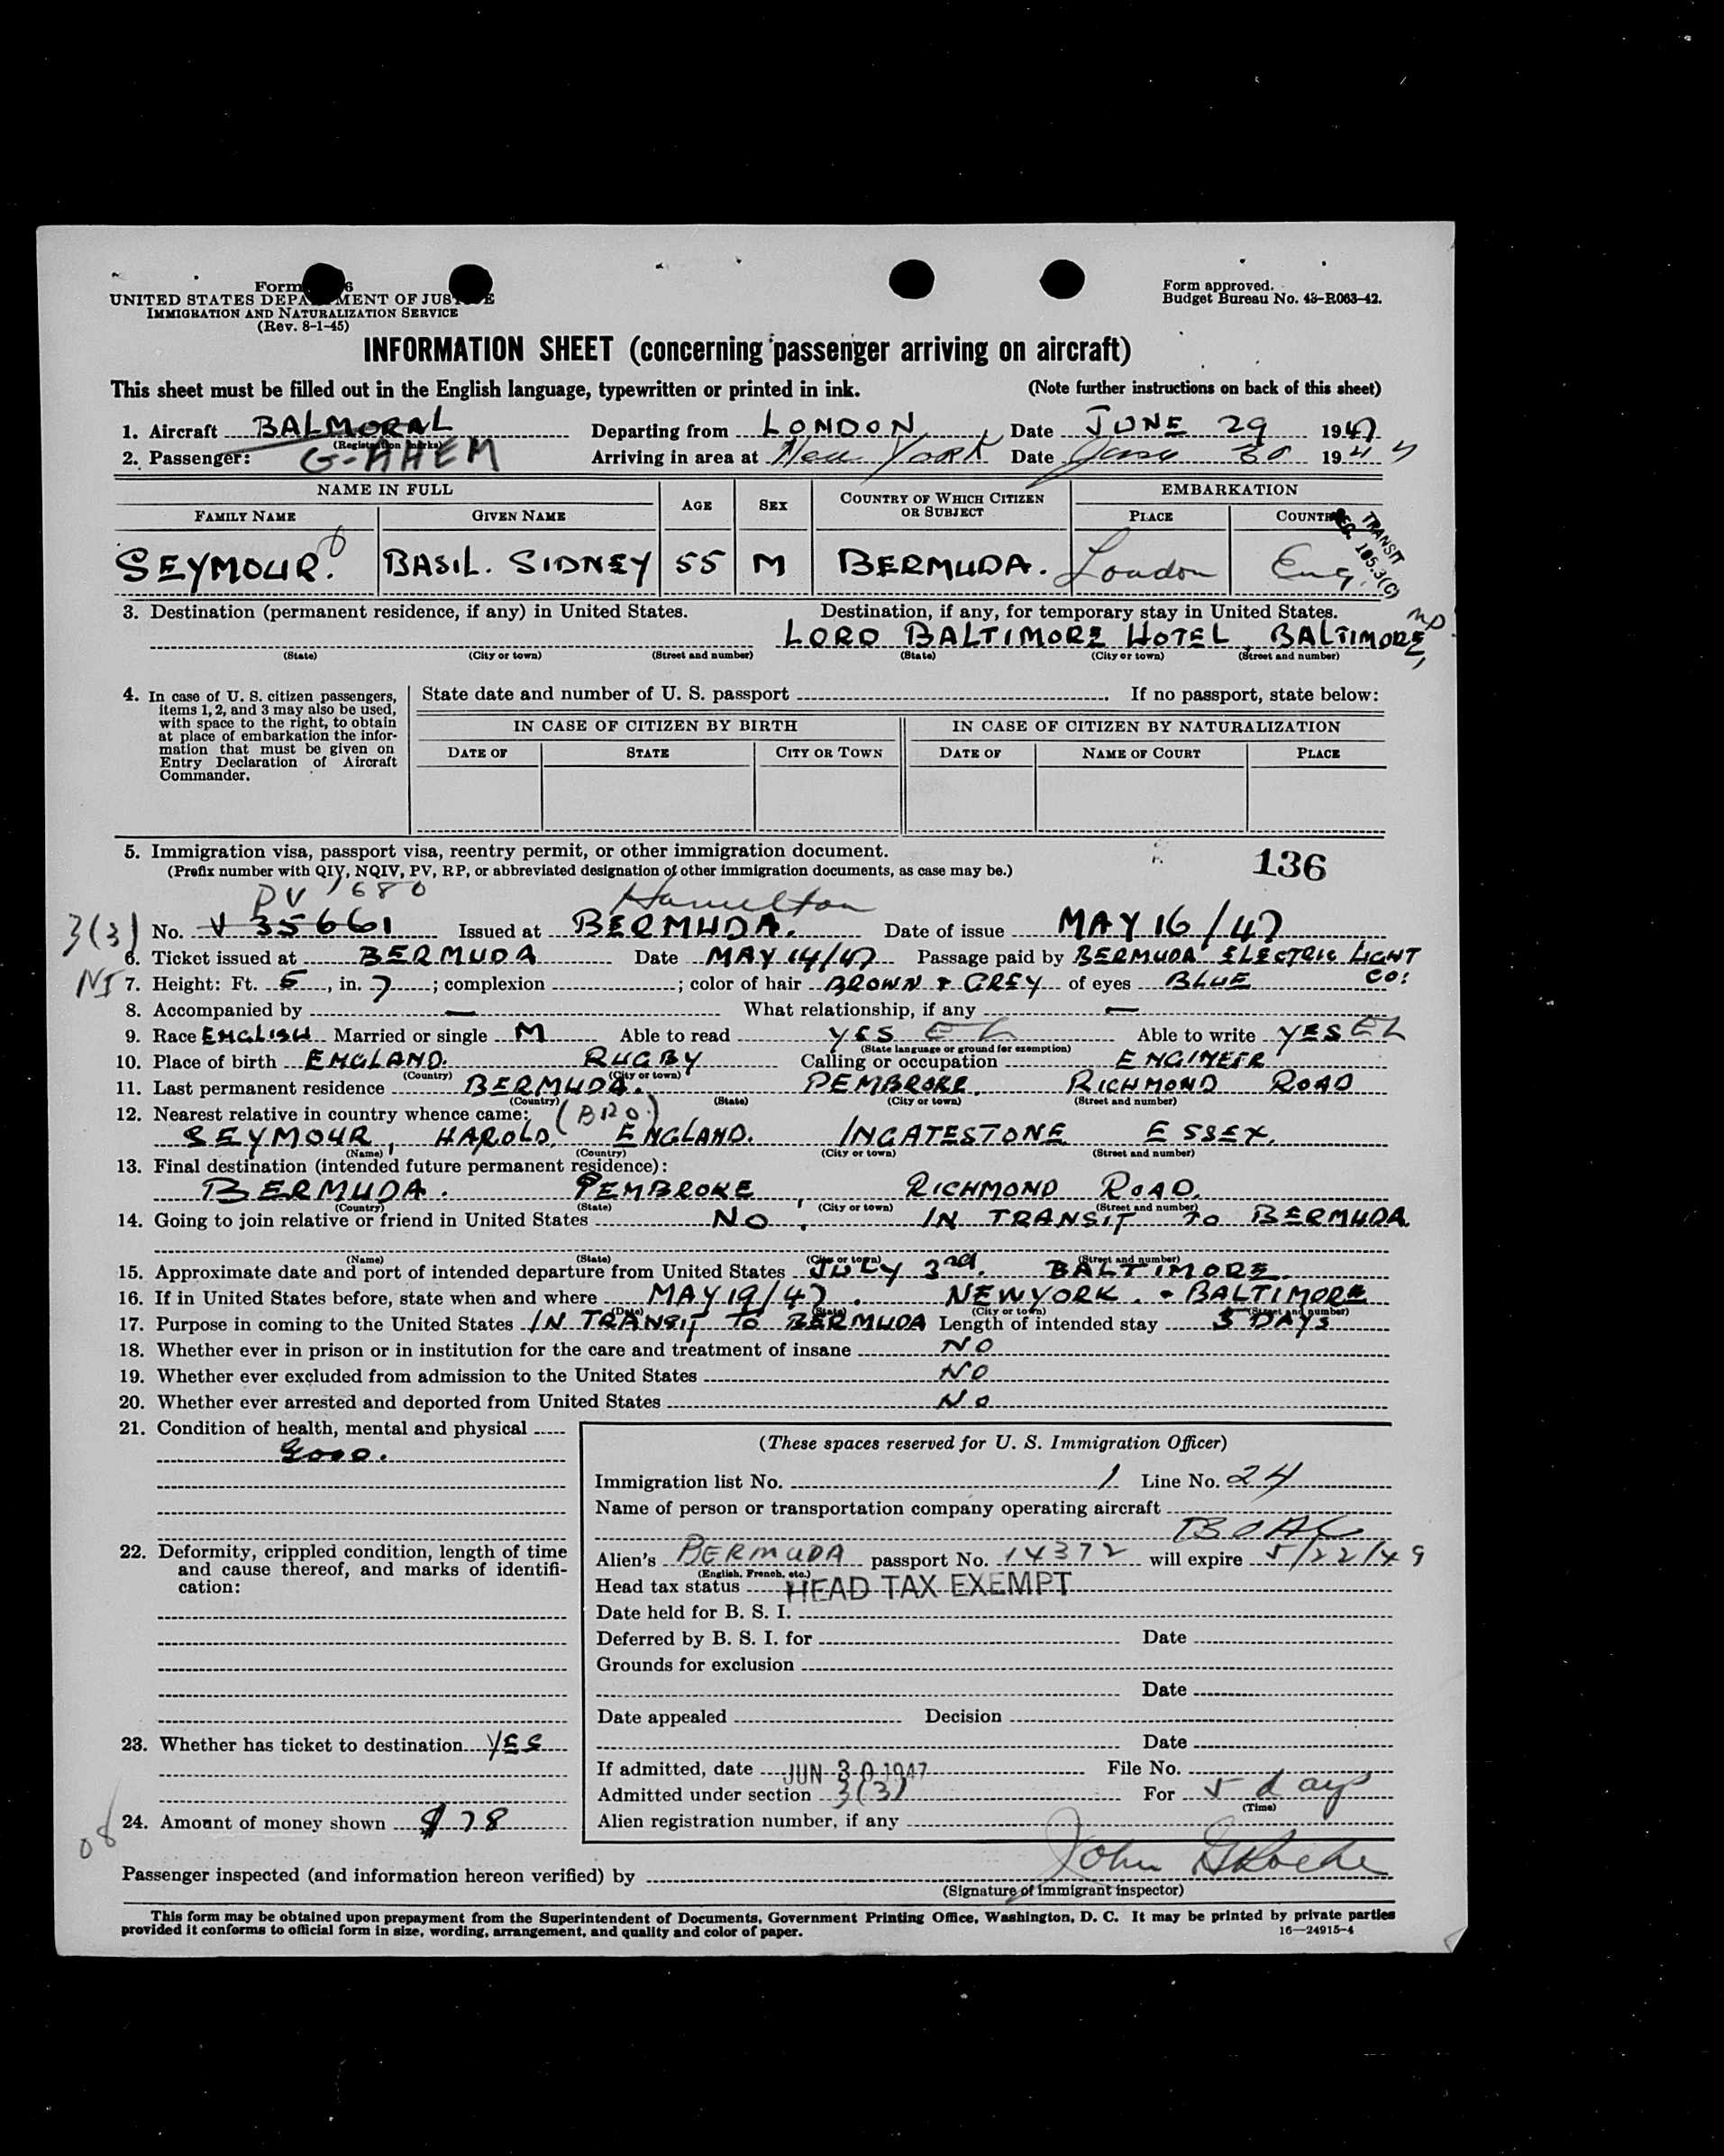 Form
UNITED STATES DEPARTMENT OF JUSTICE
IMMIGRATION AND NATURALIZATION SERVICE
(Rev. 8-1-45)
Form approved.
Budget Bureau No. 43-R063-42.
INFORMATION SHEET (concerning passenger arriving on aircraft)
This sheet must be filled out in the English language, typewritten or printed in ink. (Note further instructions on back of this sheet)
1. Aircraft BALMORAL Departing from LONDON Date JUNE 29 1947
(Registration marks)
2. Passenger: G-AHEM Arriving in area at New York Date June 30 1947
NAME IN FULL AGE SEX COUNTRY OF WHICH CITIZEN OR SUBJECT EMBARKATION
FAMILY NAME GIVEN NAME PLACE COUNTRY
TRANSIT
105.3(C)
SEYMOUR. BASIL. SIDNEY 55 M BERMUDA. London Eng.
3. Destination (permanent residence, if any) in United States. Destination, if any, for temporary stay in United States.
LORD BALTIMORE HOTEL, BALTIMORE, MD
(State) (City or town) (Street and number) (State) (City or town) (Street and number)
4. In case of U. S. citizen passengers, items 1, 2, and 3 may also be used, with space to the right, to obtain at place of embarkation the information that must be given on Entry Declaration of Aircraft Commander.
State date and number of U. S. passport If no passport, state below:
IN CASE OF CITIZEN BY BIRTH IN CASE OF CITIZEN BY NATURALIZATION
DATE OF STATE CITY OR TOWN DATE OF NAME OF COURT PLACE
5. Immigration visa, passport visa, reentry permit, or other immigration document. 136
(Prefix number with QIV, NQIV, PV, RP, or abbreviated designation of other immigration documents, as case may be.)
PV 1680 Hamilton
3(3) No. V 35661 Issued at BERMUDA. Date of issue MAY 16/47
6. Ticket issued at BERMUDA Date MAY 14/47 Passage paid by BERMUDA ELECTRIC LIGHT CO:
NI 7. Height: Ft. 5, in. 7; complexion ; color of hair BROWN & GREY of eyes BLUE
8. Accompanied by — What relationship, if any —
9. Race ENGLISH Married or single M Able to read YES EL Able to write YES EL
(State language or ground for exemption)
10. Place of birth ENGLAND. RUGBY Calling or occupation ENGINEER
(Country) (City or town)
11. Last permanent residence BERMUDA. PEMBROKE. RICHMOND ROAD
(Country) (State) (City or town) (Street and number)
12. Nearest relative in country whence came: (BRO.)
SEYMOUR, HAROLD, ENGLAND. INGATESTONE ESSEX.
(Name) (Country) (City or town) (Street and number)
13. Final destination (intended future permanent residence):
BERMUDA. PEMBROKE, RICHMOND ROAD.
(Country) (State) (City or town) (Street and number)
14. Going to join relative or friend in United States NO. IN TRANSIT TO BERMUDA.
(Name) (State) (City or town) (Street and number)
15. Approximate date and port of intended departure from United States JULY 3rd. BALTIMORE.
16. If in United States before, state when and where MAY 19/47. NEW YORK. & BALTIMORE
(Date) (State) (City or town) (Street and number)
17. Purpose in coming to the United States IN TRANSIT TO BERMUDA Length of intended stay 5 DAYS
18. Whether ever in prison or in institution for the care and treatment of insane NO
19. Whether ever excluded from admission to the United States NO
20. Whether ever arrested and deported from United States NO
21. Condition of health, mental and physical
GOOD.
22. Deformity, crippled condition, length of time and cause thereof, and marks of identification:
23. Whether has ticket to destination YES
24. Amount of money shown $78
(These spaces reserved for U. S. Immigration Officer)
Immigration list No. 1 Line No. 24
Name of person or transportation company operating aircraft
BOAC
Alien's BERMUDA passport No. 14372 will expire 5/22/49
(English, French, etc.)
Head tax status HEAD TAX EXEMPT
Date held for B. S. I.
Deferred by B. S. I. for Date
Grounds for exclusion
Date
Date appealed Decision
Date
If admitted, date JUN 30 1947 File No.
Admitted under section 3(3) For 5 days
(Time)
Alien registration number, if any
Passenger inspected (and information hereon verified) by John G Roche
(Signature of immigrant inspector)
This form may be obtained upon prepayment from the Superintendent of Documents, Government Printing Office, Washington, D. C. It may be printed by private parties
provided it conforms to official form in size, wording, arrangement, and quality and color of paper. 16—24915-4